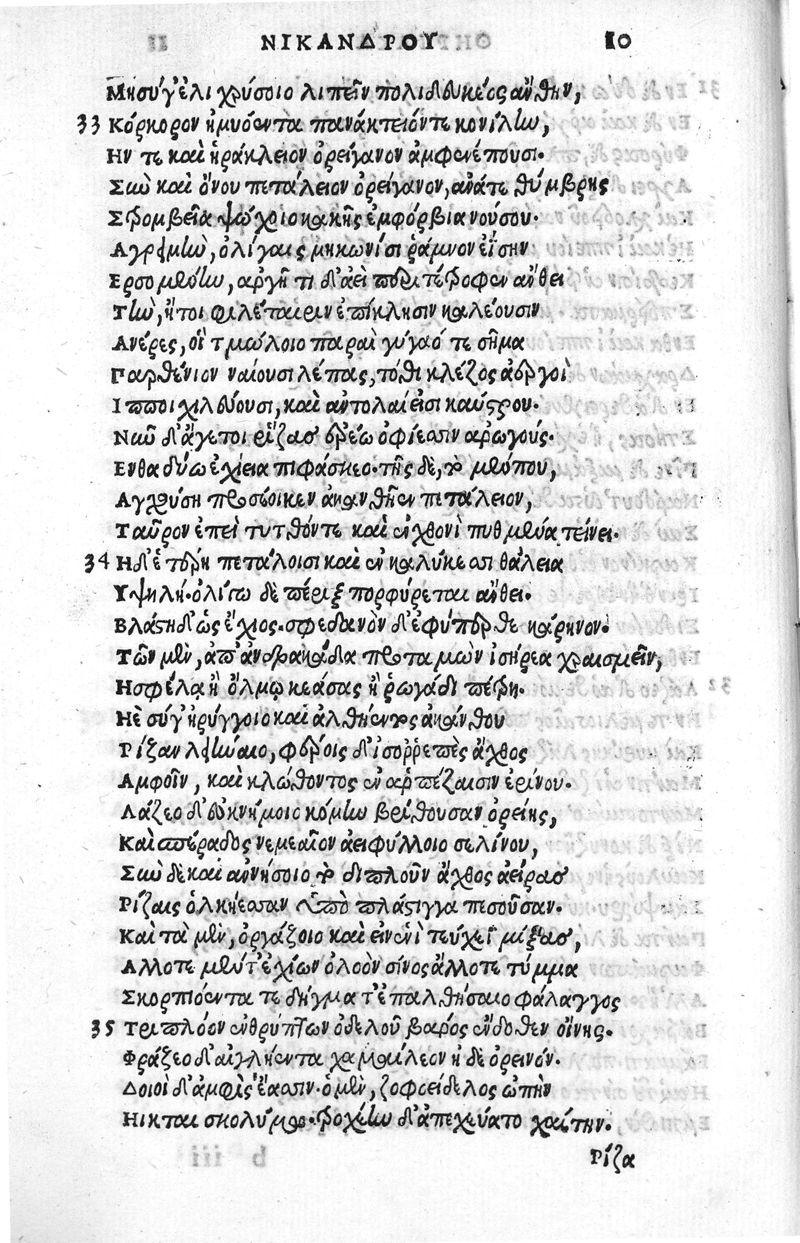 ΝΙΚΑΝΔΡΟΥ 10
Μὴ σύ γ' ἑλιχρύσοιο λιπεῖν πολυδευκέος ἄνθην,
33 Κόρκορον ἢ μυόεντα πανάκτειόν τε κονίλην,
Ην τε καὶ ἡράκλειον ὀρείγανον ἀμφενέπουσι.
Σὺν καὶ ὄνου πετάλειον ὀρείγανον, αὖά τε θύμβρης
Στρομβεῖα ψώχοιο κακῆς ἐμφόρβια νούσου.
Αγρει μὴν, ὀλίγαις μηκωνίσι ῥάμνον ἐΐσην
Ερσομένην, ἀργῆτι δ' ἀεὶ περιτέτροφεν ἄνθει
Τὴν, ἤτοι φιλέταιριν ἐπίκλησιν καλέουσιν
Ανέρες, οἳ τμώλοιο παραὶ γύγαό τε σῆμα
Παρθένιον ναίουσι λέπας, τόθι κλέζος ἀεργοὶ
Ιπποι χιλεύουσι, καὶ ἀντολαί εἰσι καΰστρου.
Νῦν δ' ἄγε τοι ῥίζας ἐρέω ὀφίεσσιν ἀρωγούς.
Ενθα δύω ἐχίεια πιφάσκεο. τῆς δὲ, τὸ μὲν που,
Αγχούσῃ προσέοικεν ἀκανθῆεν πετάλειον,
Ταῦρον ἐπεὶ τυτθόν τε καὶ ἐν χθονὶ πυθμένα τείνει.
34 Η δ' ἑτέρη πετάλοισι καὶ ἐν καλύκεσσι θάλεια
Υψηλή. ὀλίγῳ δὲ πέριξ πορφύρεται ἄνθει.
Βλάστη δ' ὡς ἔχιος. σφεδανὸν δ' ἐφύπερθε κάρηνον.
Τῶν μὲν, ἀπ' ἀνδρακάδα προταμὼν ἰσήρεα χραισμεῖν,
Η σφέλᾳ ἢ ὅλμῳ κεάσας ἢ ῥωγάδι πέτρῃ.
Ηὲ σύ γ' ἠρύγγοιο καὶ ἀλθήεντος ἀκάνθου
Ρίζαν λειήναιο, φέροις δ' ἰσορρεπὲς ἄχθος
Αμφοῖν, καὶ κλώθοντος ἐν ἁρπέζαισιν ἐρίνου.
Λάζεο δ' εὐκνήμοιο κόμην βρίθουσαν ὀρείης,
Καὶ σπέραδος νεμεαῖον ἀειφύλλοιο σελίνου,
Σὺν δὲ καὶ ἀννήσοιο τὸ διπλοῦν ἄχθος ἀείρας
Ρίζαις ὁλκήεσσαν ὑπὸ πλάστιγγα πεσοῦσαν.
Καὶ τὰ μὲν, ὀργάζοιο καὶ εἰν ἑνὶ τεύχεϊ μίξας,
Αλλοτε μέν τ' ἐχίων ὀλοὸν σίνος ἄλλοτε τύμμα
Σκορπιόεντα τε δῆγμα τ' ἐπαλθήσαιο φάλαγγος
35 Τριπλόον ἐνθρύπτων ὀδελοῦ βαρος ἔνδοθεν οἴνης.
Φράζεο δ' αἰγλήεντα χαμαίλεον ἠδὲ ὀρεινόν.
Δοιοὶ δ' ἀμφὶς ἔασσιν. ὁ μὲν, ζοφοείδελος ὠπὴν
Ηικται σκολύμῳ. τροχέην δ' ἀπεχεύατο χαίτην.
Ρίζα